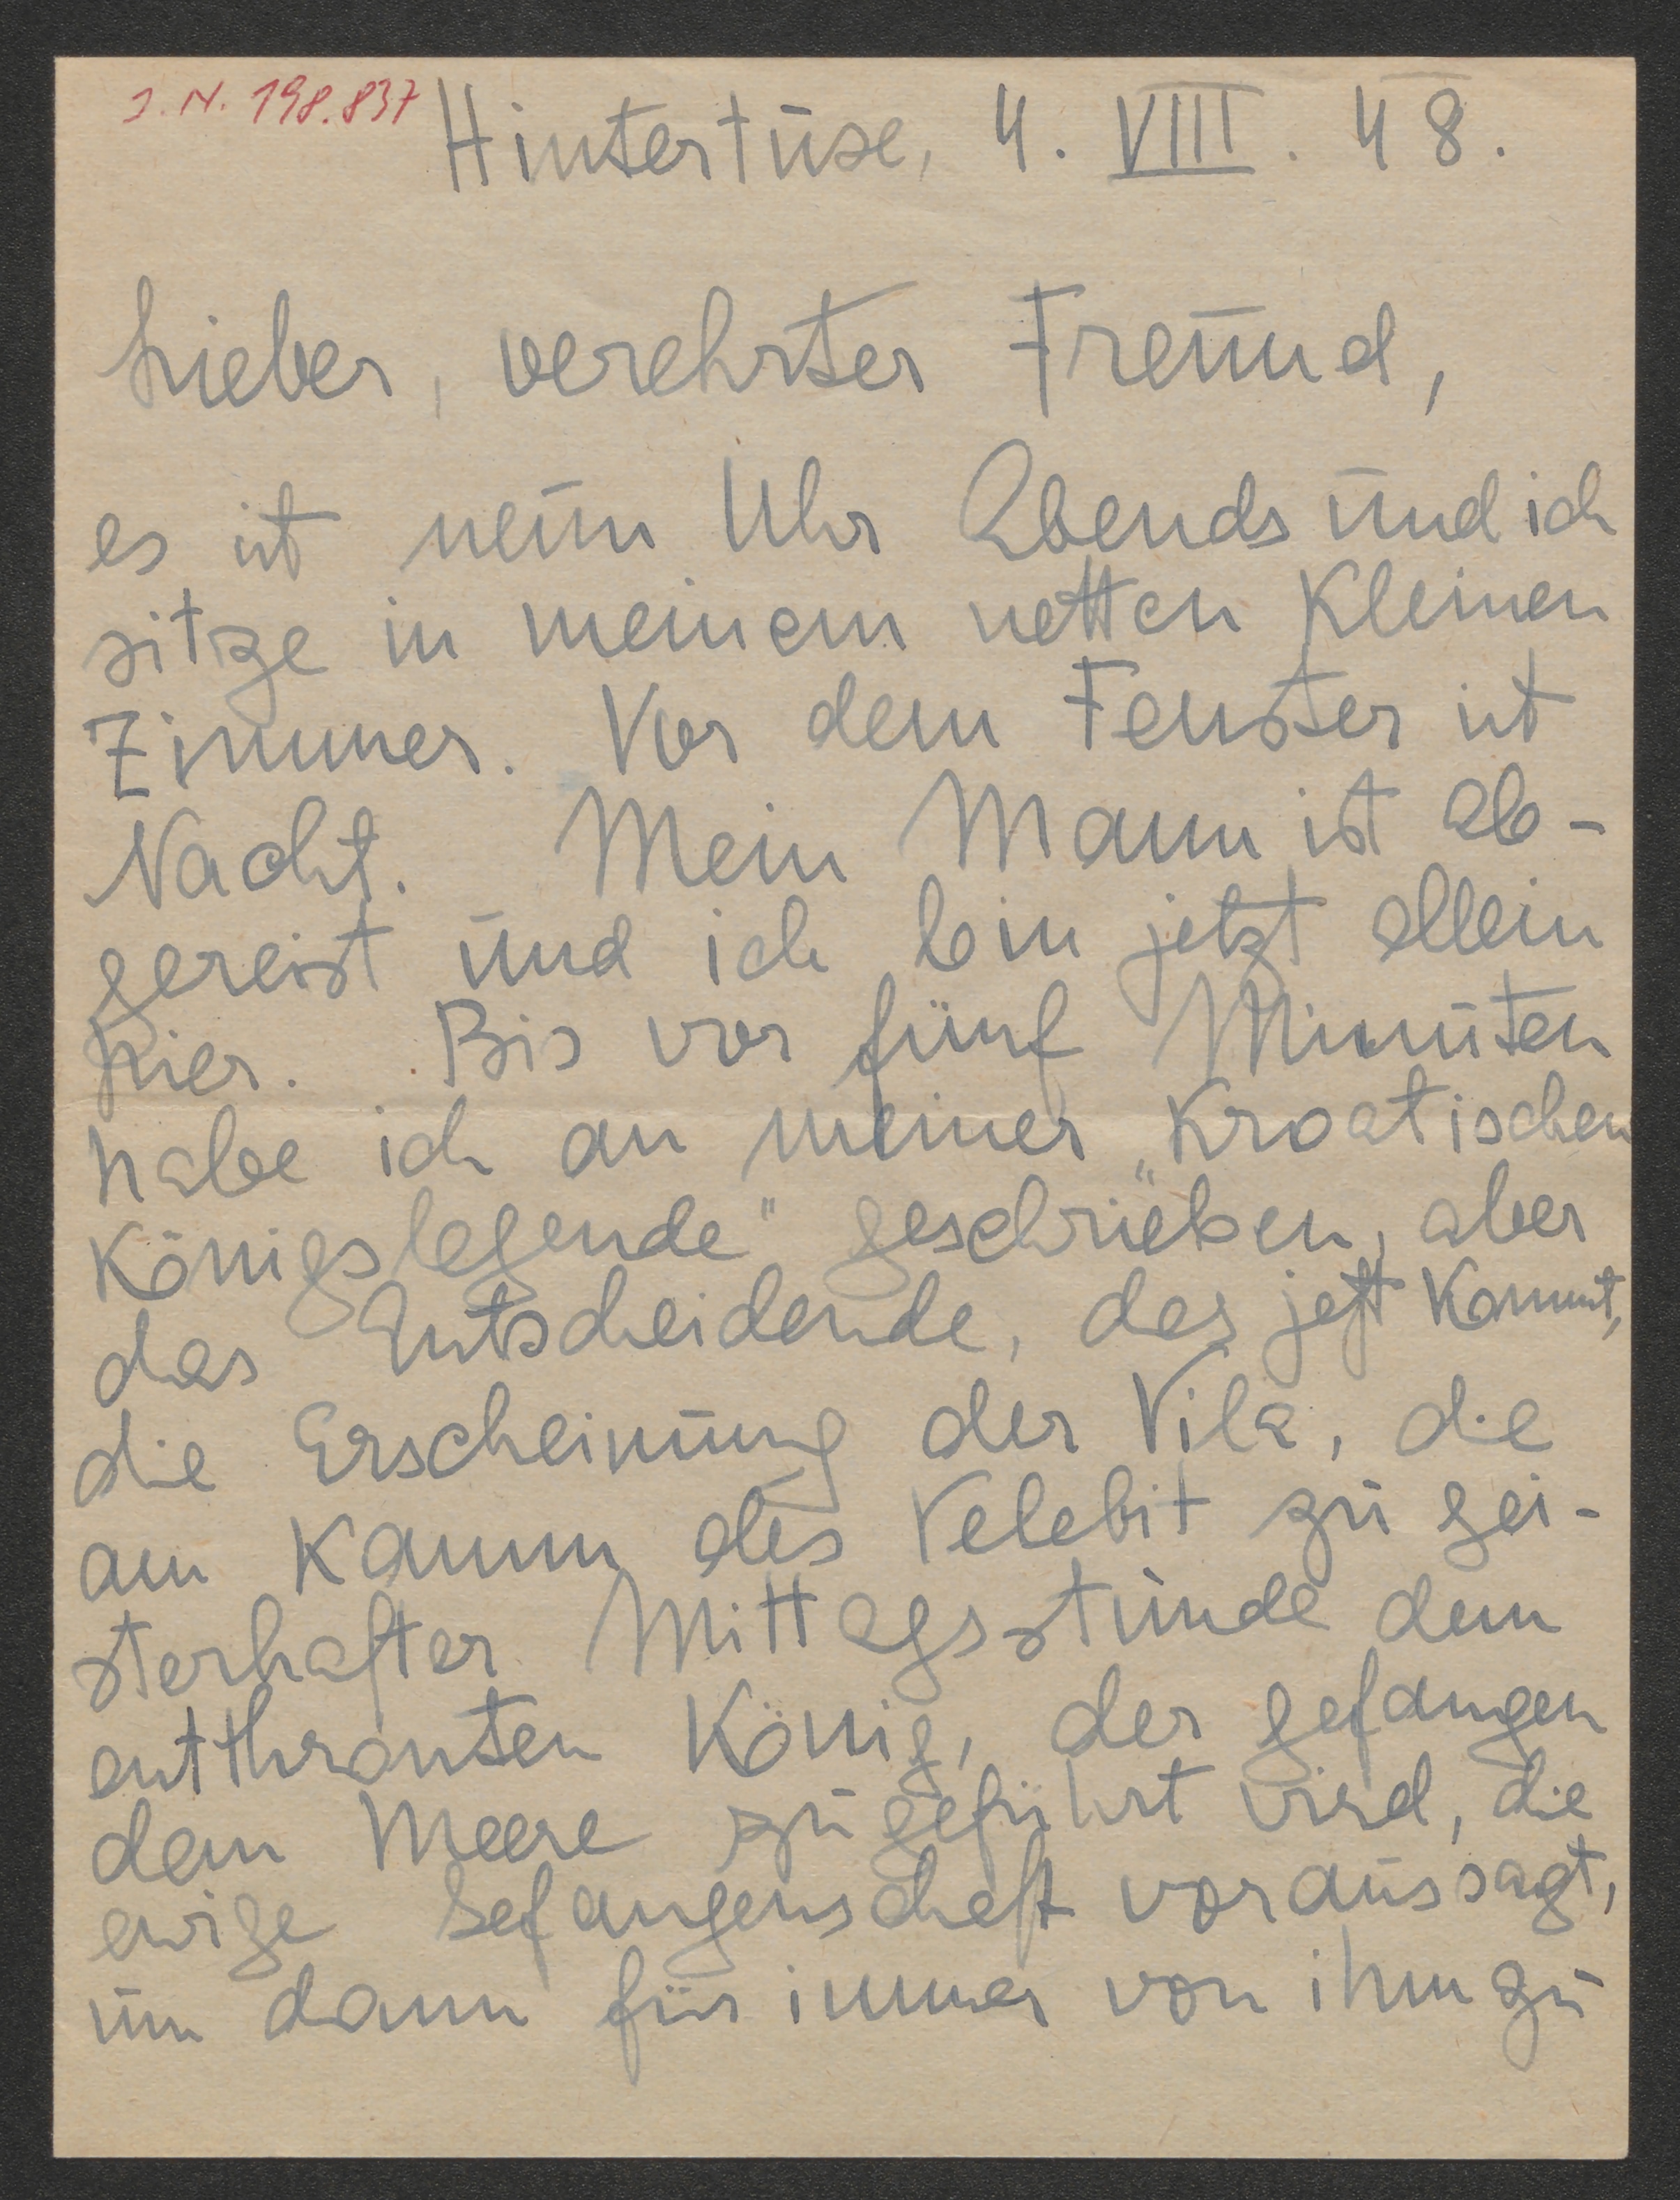 J. N. 198.837
Hintertüxe, 4. VIII. 48.
Lieber, verehrter Freund,
es ist neun Uhr Abends und ich
sitze in meinem netten kleinen
Zimmer. Vor dem Fenster ist
Nacht. Mein Mann ist ab-
gereist und ich bin jetzt allein
hier. Bis vor fünf Minuten
habe ich an meiner „Kroatischen
Königslegende" geschrieben, aber
das Entscheidende, das jetzt kommt,
die Erscheinung der Vila, die
am Kamm des Velebit zu gei-
sterhafter Mittagsstunde dem
entthronten König, der gefangen
dem Meere zugeführt wird, die
ewige Gefangenschaft voraussagt,
um dann für immer von ihm zu